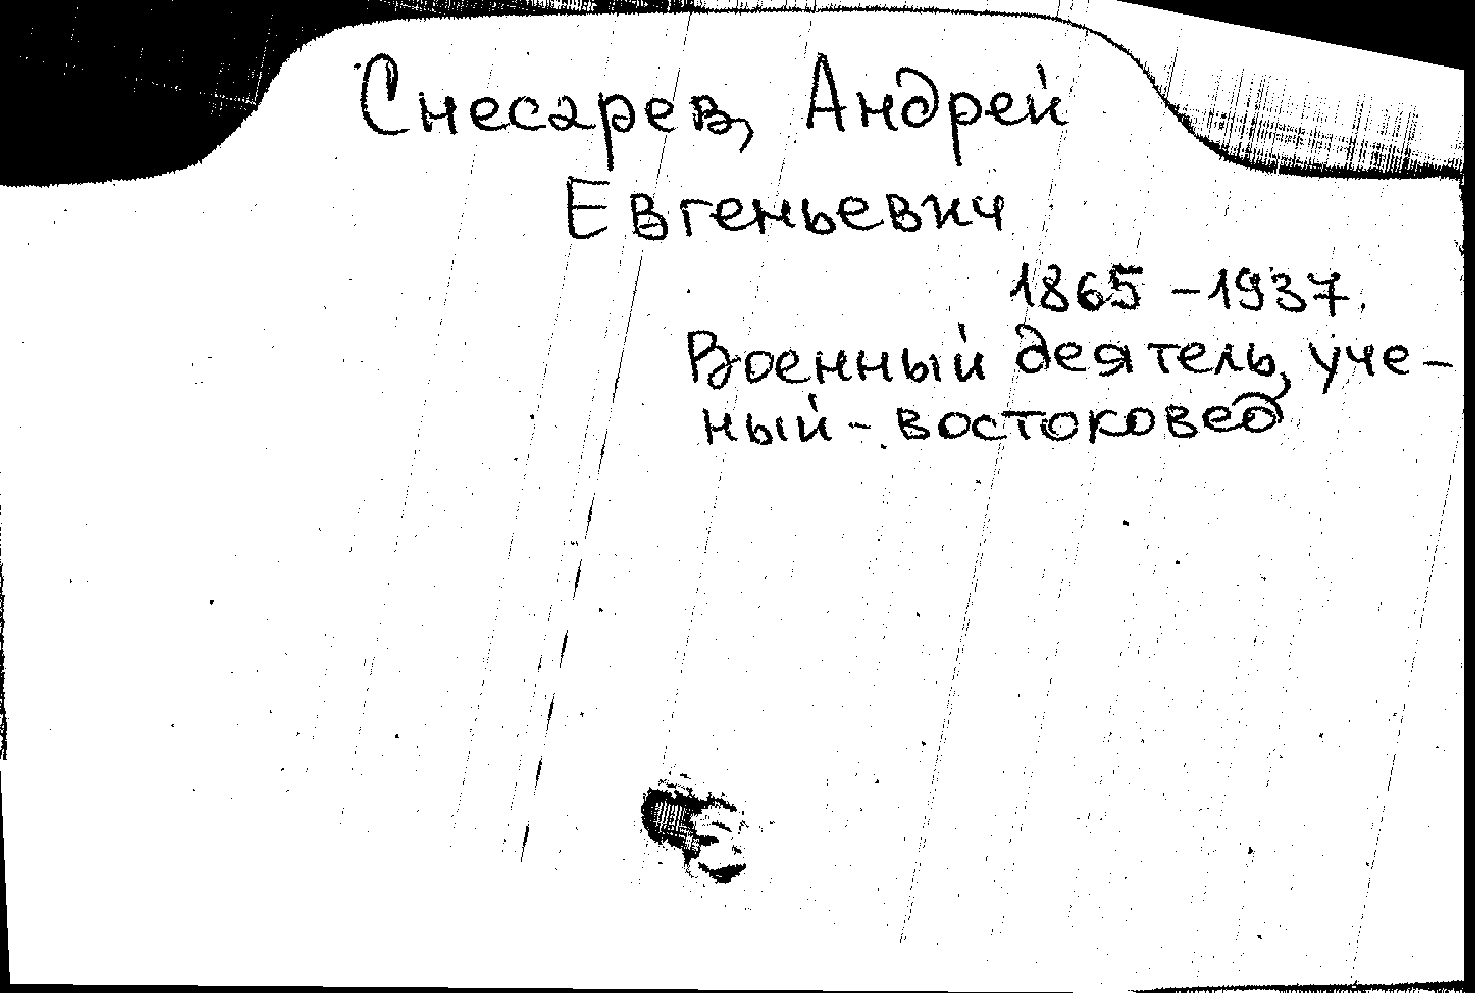 Снесарев, Андрей
Евгеньевич
1865 - 1937.
Военный деятель, уче-
ный - востоковед